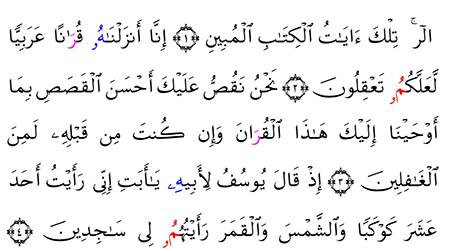 الٓرۚ تِلۡكَ ءَايَٰتُ ٱلۡكِتَٰبِ ٱلۡمُبِينِ ۝١ إِنَّآ أَنزَلۡنَٰهُۥ قُرَٰنًا عَرَبِيّٗا
لَّعَلَّكُمُۥ تَعۡقِلُونَ ۝٢ نَحۡنُ نَقُصُّ عَلَيۡكَ أَحۡسَنَ ٱلۡقَصَصِ بِمَآ
أَوۡحَيۡنَآ إِلَيۡكَ هَٰذَا ٱلۡقُرَانَ وَإِن كُنتَ مِن قَبۡلِهِۦ لَمِنَ
ٱلۡغَٰفِلِينَ ۝٣ إِذۡ قَالَ يُوسُفُ لِأَبِيهِۦ يَٰٓأَبَتِ إِنِّي رَأَيۡتُ أَحَدَ
عَشَرَ كَوۡكَبٗا وَٱلشَّمۡسَ وَٱلۡقَمَرَ رَأَيۡتُهُمُۥ لِي سَٰجِدِينَ ۝٤